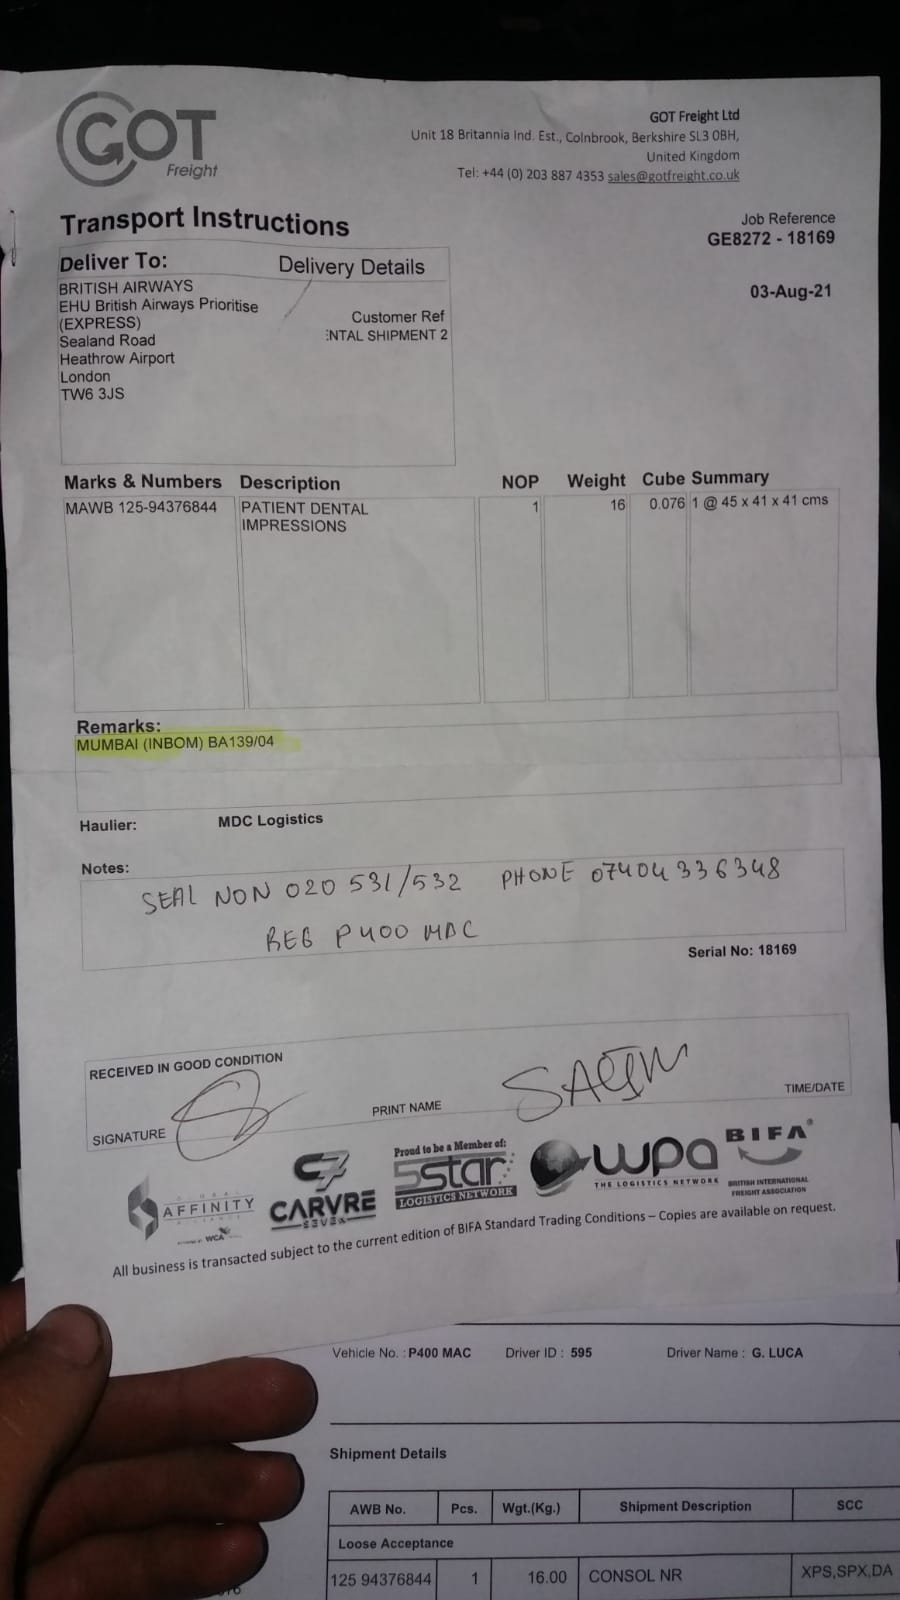 GOT
Freight
GOT Freight Ltd
Unit 18 Britannia Ind. Est., Colnbrook, Berkshire SL3 0BH,
United Kingdom
Tel: +44 (0) 203 887 4353 sales@gotfreight.co.uk
Transport Instructions
Job Reference
GE8272 - 18169
03-Aug-21
Deliver To:
Delivery Details
BRITISH AIRWAYS
EHU British Airways Prioritise
(EXPRESS)
Sealand Road
Heathrow Airport
London
TW6 3JS
Customer Ref
ENTAL SHIPMENT 2
Marks & Numbers Description NOP Weight Cube Summary
MAWB 125-94376844 PATIENT DENTAL 1 16 0.076 1 @ 45 x 41 x 41 cms
IMPRESSIONS
Remarks:
MUMBAI (INBOM) BA139/04
Haulier: MDC Logistics
Notes:
SEAL NON 020 531/532 PHONE 07404336348
REG P400 MAC
Serial No: 18169
RECEIVED IN GOOD CONDITION
SIGNATURE
PRINT NAME
TIME/DATE
GLOBAL
AFFINITY
ALLIANCE
WCA
C7
CARVRE
SEVEN
Proud to be a Member of:
5star
LOGISTICS NETWORK
wpa
THE LOGISTICS NETWORK
BIFA®
BRITISH INTERNATIONAL
FREIGHT ASSOCIATION
All business is transacted subject to the current edition of BIFA Standard Trading Conditions – Copies are available on request.
Vehicle No. : P400 MAC Driver ID : 595 Driver Name : G. LUCA
Shipment Details
AWB No. Pcs. Wgt.(Kg.) Shipment Description SCC
Loose Acceptance
125 94376844 1 16.00 CONSOL NR XPS,SPX,DA